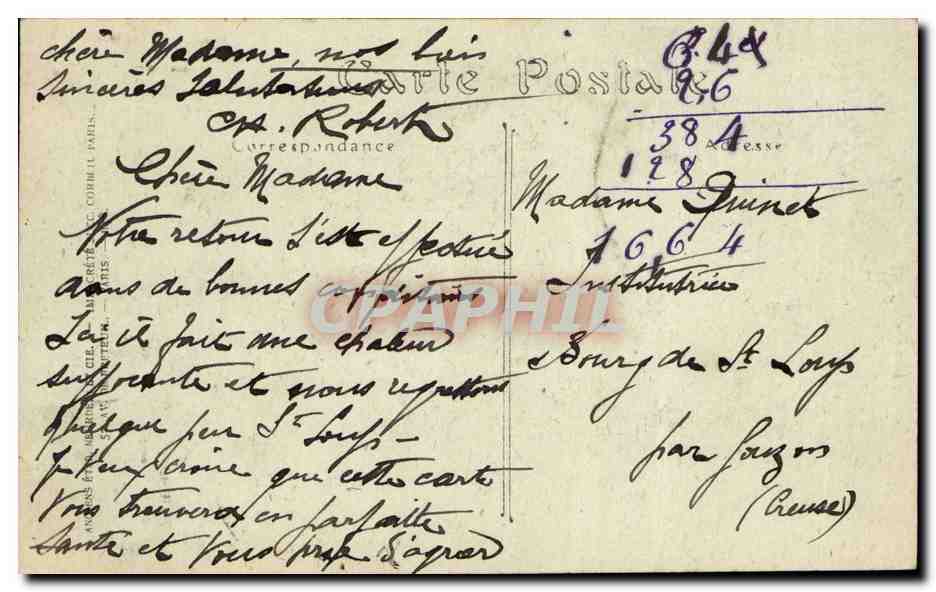 chère Madame, nos bien
sincères Salutations
CH. Robert
Carte Postale
Correspondance
Adresse
Chère Madame
Notre retour s'est effectué
dans de bonnes conditions
Ici il fait une chaleur
suffocante et nous regrettons
quelque peu St Loup -
Je veux croire que cette carte
Vous trouvera en parfaite
santé et vous prie d'agréer
6.4
2,6
384
128
166,4
Madame Quinet
Institutrice
Bourg de St Loup
par Gouzon
(Creuse)
CPAPHIL
ANCIENS ÉTAB. NEURDEIN ET CIE. IMP. CRÉTÉ SUCC. CORBEIL-PARIS
PARIS